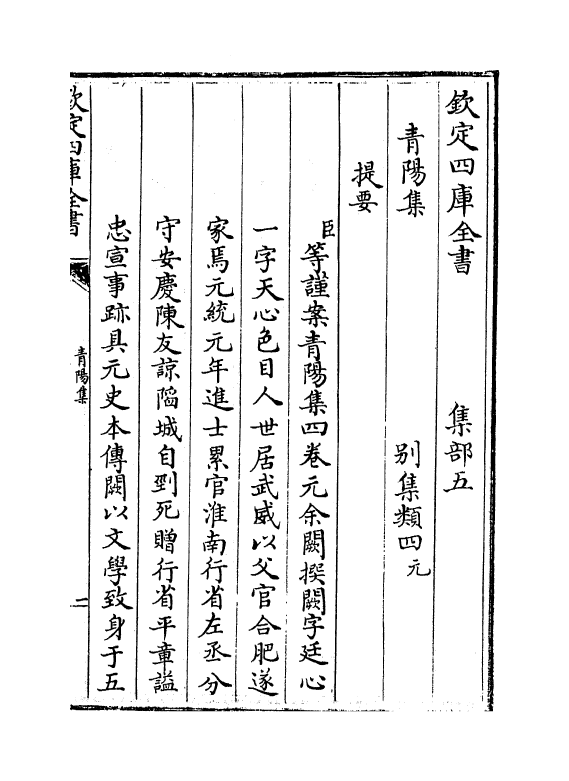 欽定四庫全書　　　　集部五
青陽集　　　　　　　別集類四元
提要
臣等謹案青陽集四卷元余闕撰闕字廷心
一字天心色目人世居武威以父官合肥遂
家焉元統元年進士累官淮南行省左丞分
守安慶陳友諒陷城自剄死贈行省平章謚
忠宣事跡具元史本傳闕以文學致身于五
欽定四庫全書
青陽集